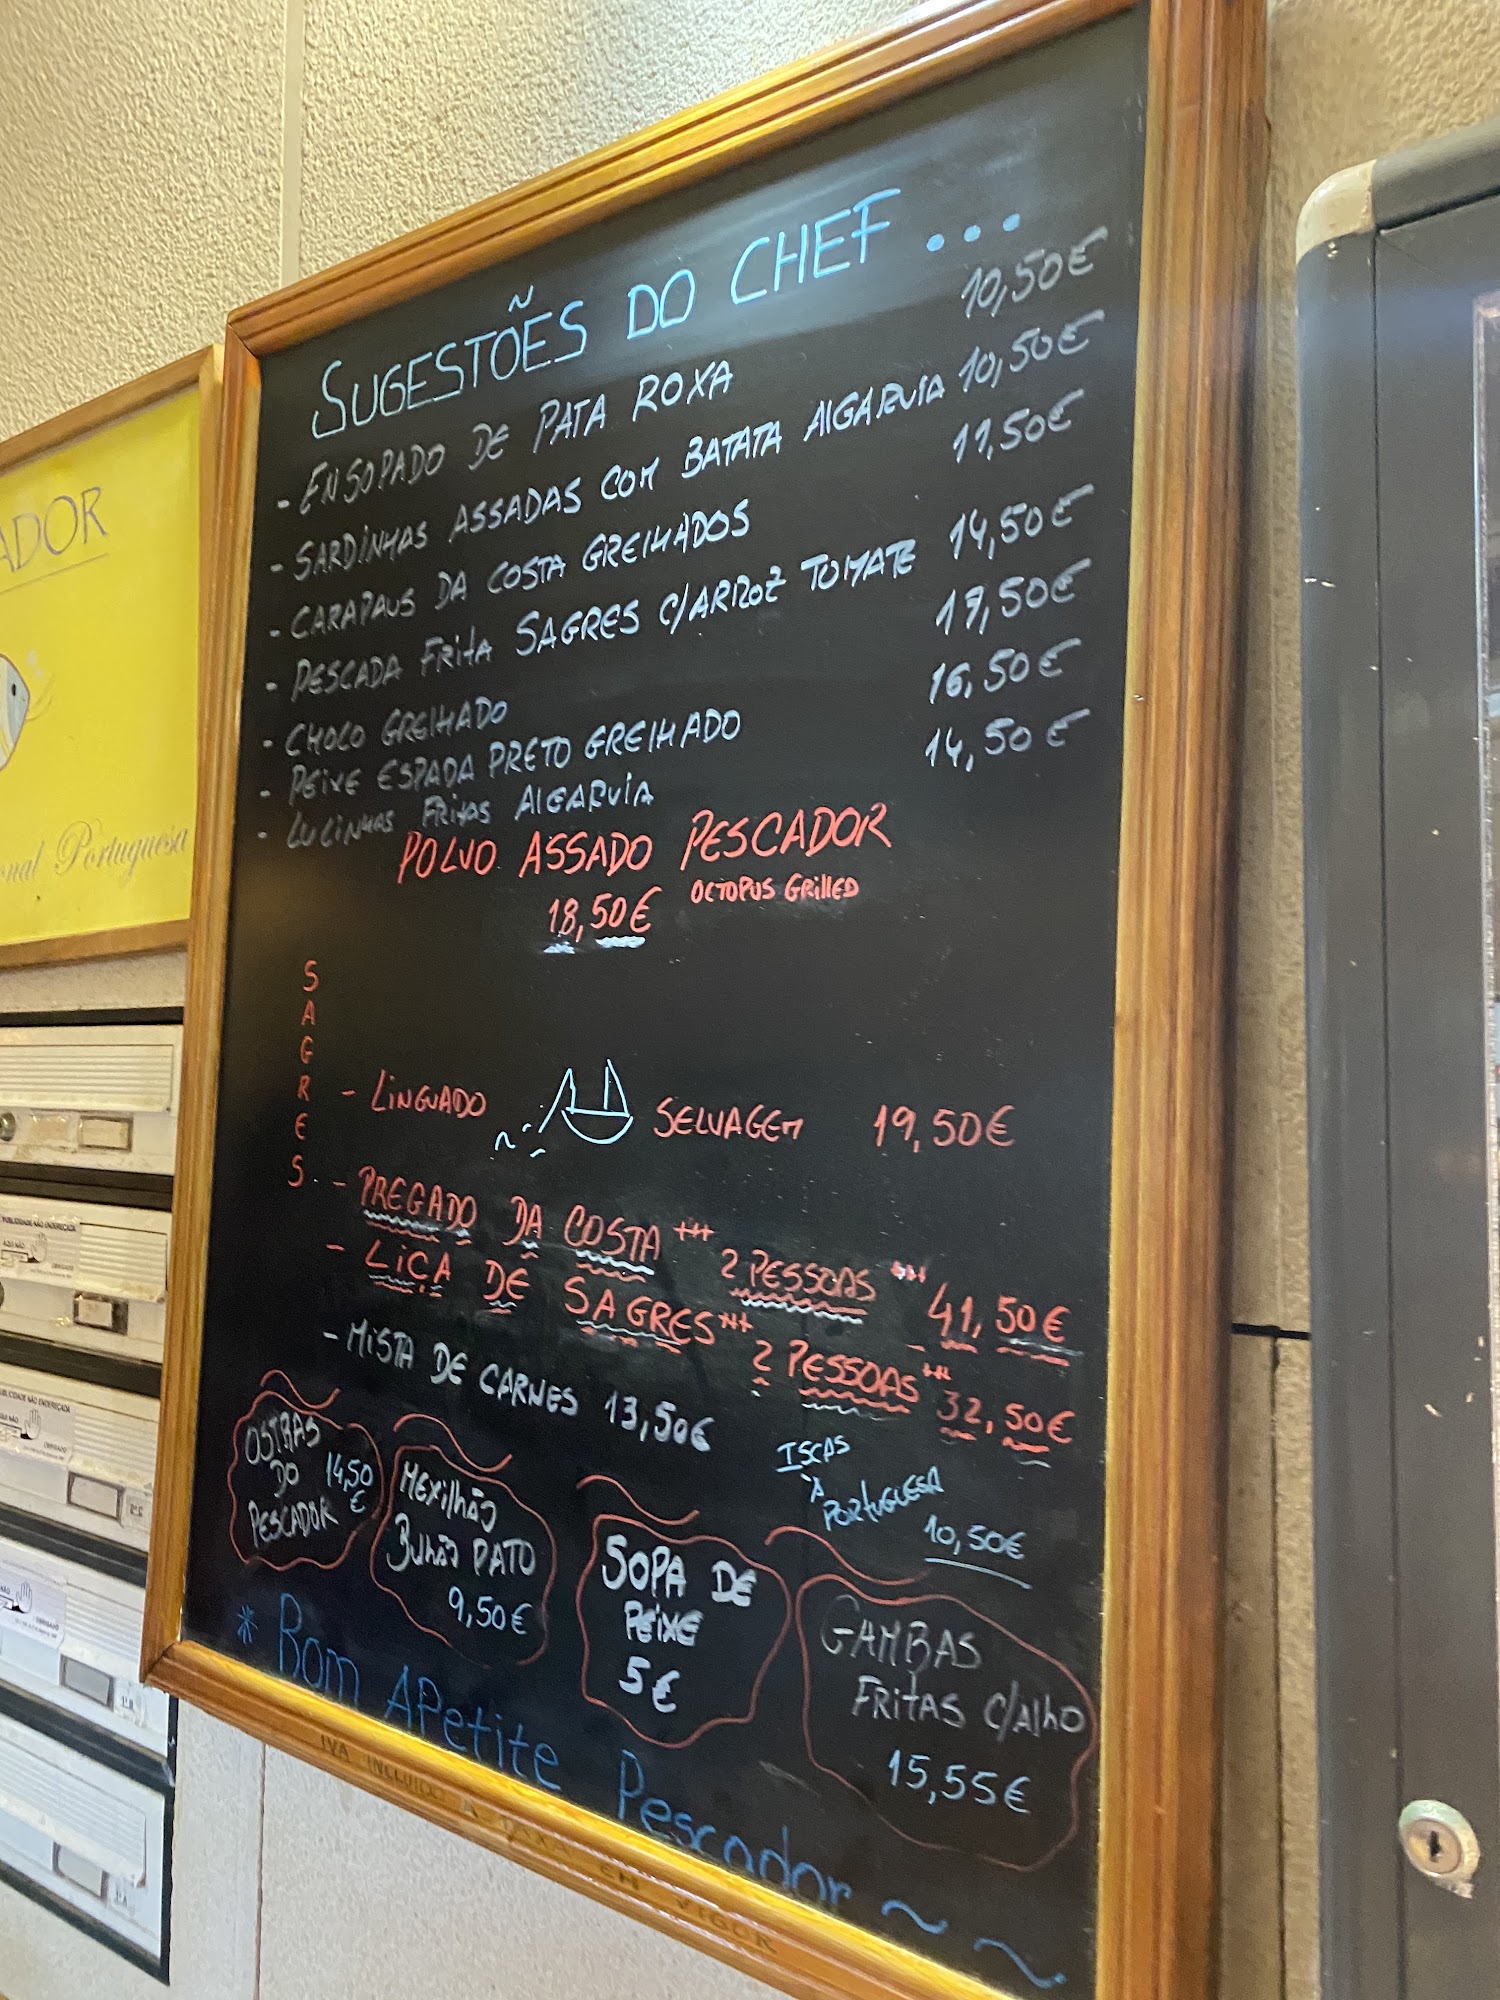 SUGESTÕES DO CHEF ...
- ENSOPADO DE PATA ROXA 10,50€
- SARDINHAS ASSADAS COM BATATA AlGARVIA 10,50€
- CARAPAUS DA COSTA GRElHADOS 11,50€
- PESCADA FRITA SAGRES C/ARROZ TOMATE 14,50€
- CHOCO GRElHADO 17,50€
- PEIXE ESPADA PRETO GRElHADO 16,50€
- LULINHAS FRITAS AlGARVIA 14,50€
POLVO ASSADO PESCADOR
18,50€ OCTOPUS GRIllED
SAGRES
- LINGUADO SELVAGEM 19,50€
- PREGADO DA COSTA +++ 2 PESSOAS +++ 41,50€
- LIÇA DE SAGRES +++ 2 PESSOAS +++ 32,50€
- MISTA DE CARNES 13,50€
ISCAS
À
PORTUGUESA
10,50€
OSTRAS
DO 14,50
PESCADOR €
MEXIlhÃO
BULHÃO PATO
9,50€
SOPA DE
PEIXE
5€
GAMBAS
FRITAS C/AlhO
15,55€
* Bom APetite Pescador ~ ~
IVA INCLUIDO A TAXA EM VIGOR
ADOR
onal Portuguesa
PUBLICIDADE NÃO ENDEREÇADA
AQUI NÃO
OBRIGADO